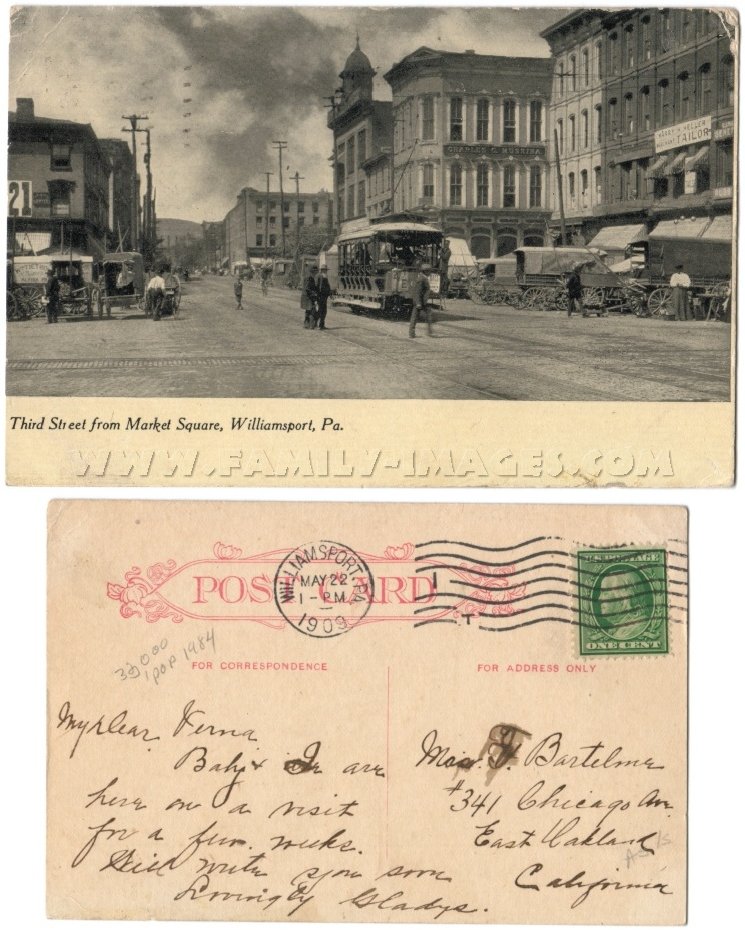 21
CHARLES C. MUSSINA
HARRY H. HELLER
MERCHANT TAILOR
Third Street from Market Square, Williamsport, Pa.
WWW.FAMILY-IMAGES.COM
POST CARD
WILLIAMSPORT, PA.
MAY 22
1 - PM
1909
1
T
ONE CENT
33000
pop 1984
FOR CORRESPONDENCE
FOR ADDRESS ONLY
My dear Verna
Baby & I are
here on a visit
for a few weeks.
Will write you soon
Lovingly Gladys.
F. Bartelme
#341 Chicago Av.
East Oakland
California